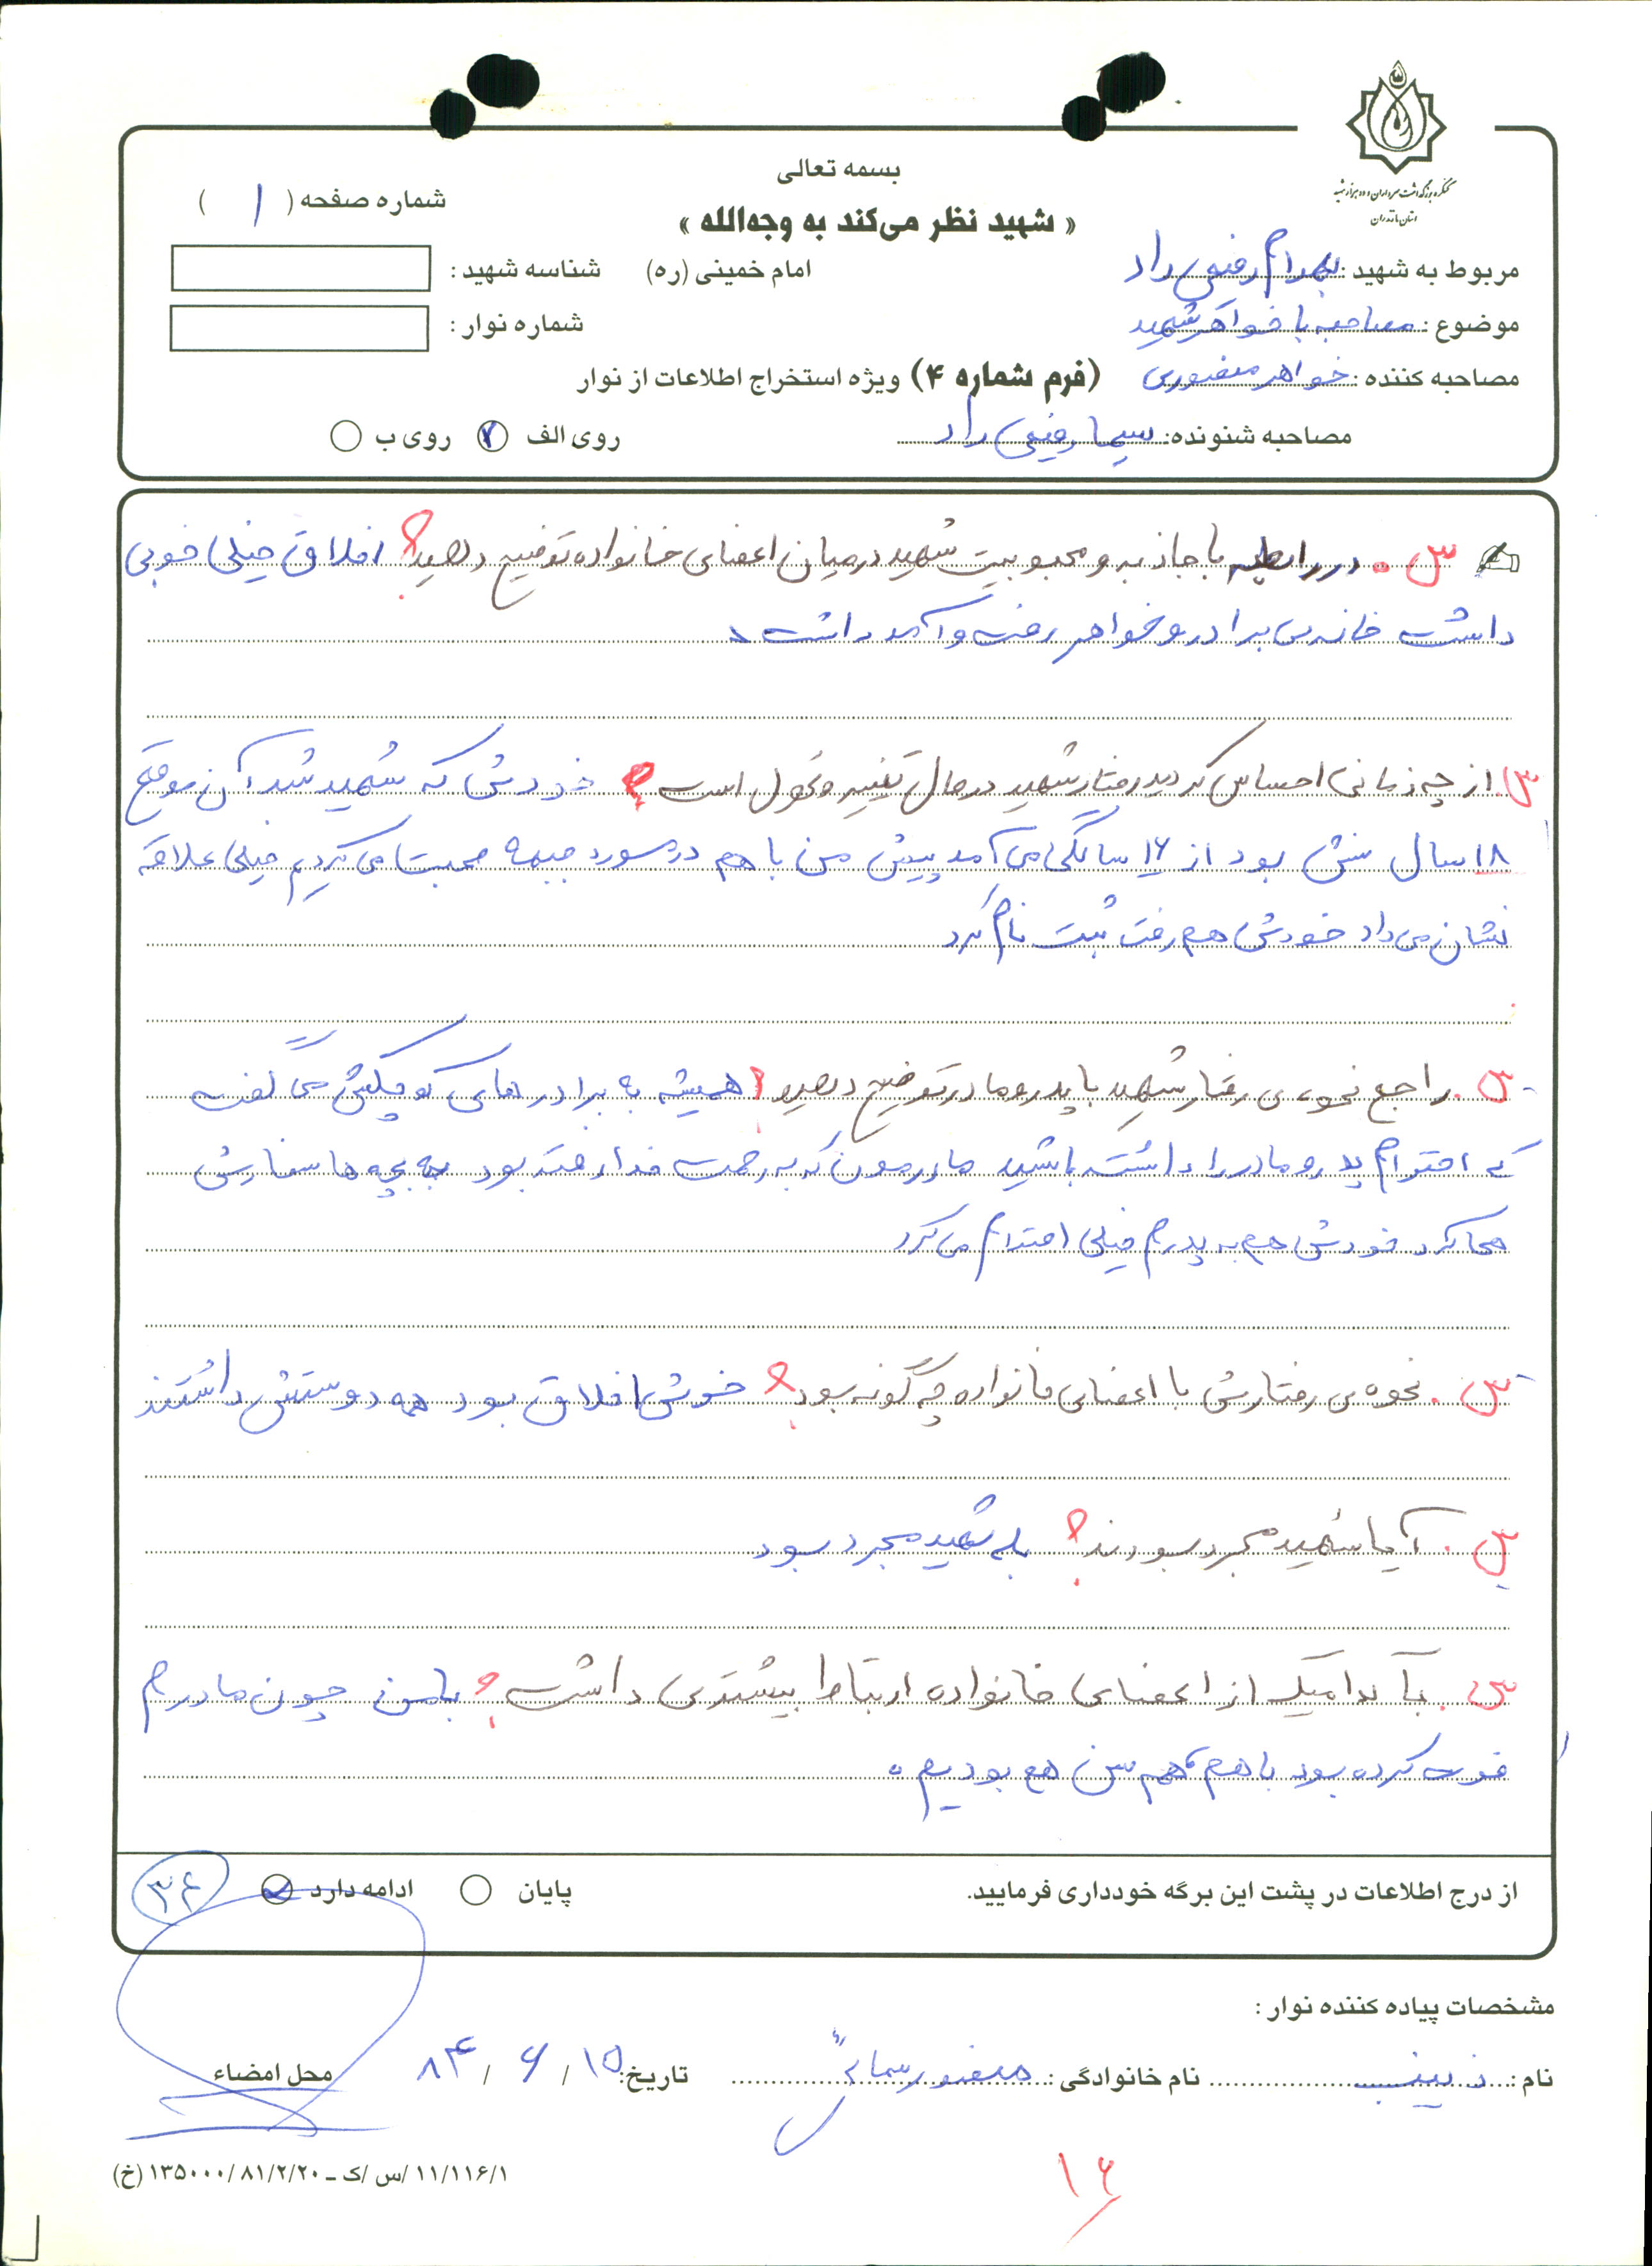 بسمه تعالی
« شهید نظر می‌کند به وجه‌الله »
امام خمینی (ره)
شماره صفحه ( ۱ )
کنگره بزرگداشت سرداران و ده هزار شهید
استان مازندران
مربوط به شهید : بهرام رفیعی راد
شناسه شهید :
موضوع : مصاحبه با خواهر شهید
شماره نوار :
مصاحبه کننده : خواهر منصوری
(فرم شماره ۴) ویژه استخراج اطلاعات از نوار
مصاحبه شنونده: سیما رفیعی راد
روی الف روی ب
س . در رابطه با جاذبه و محبوبیت شهید در میان اعضای خانواده توضیح دهید؟ اخلاق خیلی خوبی
داشت خانه ی برادر و خواهر رفت و آمد داشت .
س . از چه زمانی احساس کردید رفتار شهید در حال تغییر و تحول است ؟ خودش که شهید شد آن موقع
۱۸ سال سنش بود از ۱۶ سالگی می آمد پیش من با هم در مورد جبهه صحبت می کردیم خیلی علاقه
نشان می داد خودش هم رفت ثبت نام کرد
س . راجع نحوه ی رفتار شهید با پدر و مادر توضیح دهید؟ همیشه به برادر های کوچکش می گفت
که احترام پدر و مادر را داشته باشید مادرمون که به رحمت خدا رفته بود به بچه ها سفارش
می کرد خودش هم به پدرم خیلی احترام می کرد
س . نحوه ی رفتارش با اعضای خانواده چه گونه بود؟ خوش اخلاق بود همه دوستش داشتند
س . آیا شهید مجرد بودند؟ بله شهید مجرد بود
س . با کدامیک از اعضای خانواده ارتباط بیشتری داشت؟ با من چون مادرم
فوت کرده بود با هم هم سن هم بودیم .
از درج اطلاعات در پشت این برگه خودداری فرمایید.
پایان ادامه دارد
۳۴
مشخصات پیاده کننده نوار :
نام : زینب نام خانوادگی : تاریخ: ۱۵ / ۶ / ۸۴ محل امضاء
۱۱/۱۱۶/۱ /س /ک ـ ۱۳۵۰۰۰/۸۱/۲/۲۰ (خ)
۱۶